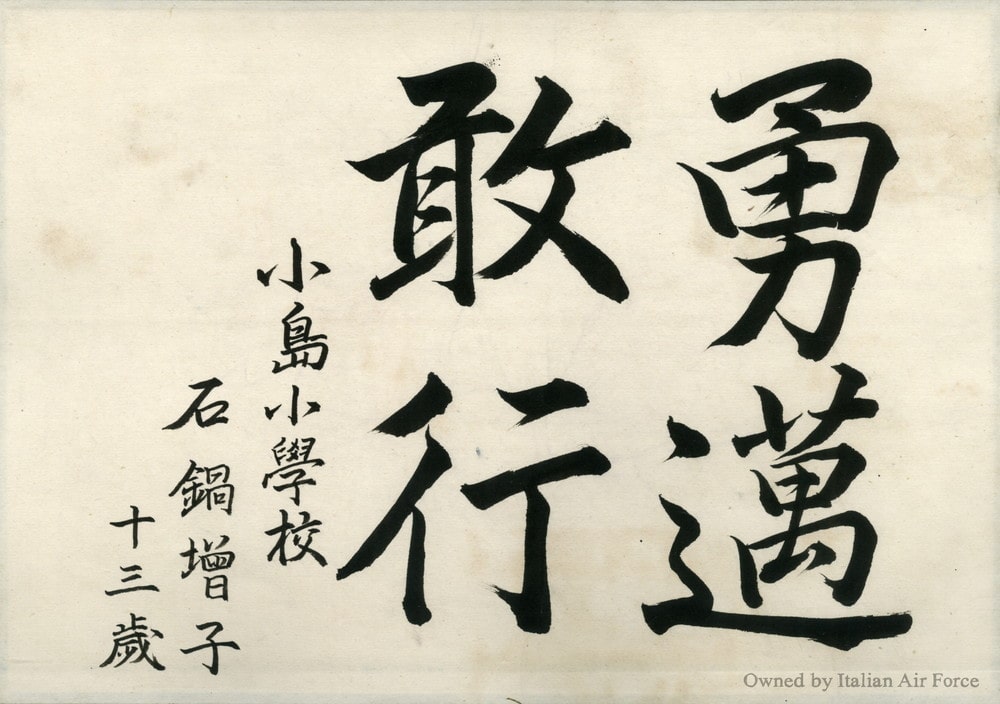 勇邁
敢行
小島小學校
石鍋増子
十三歳
Owned by Italian Air Force